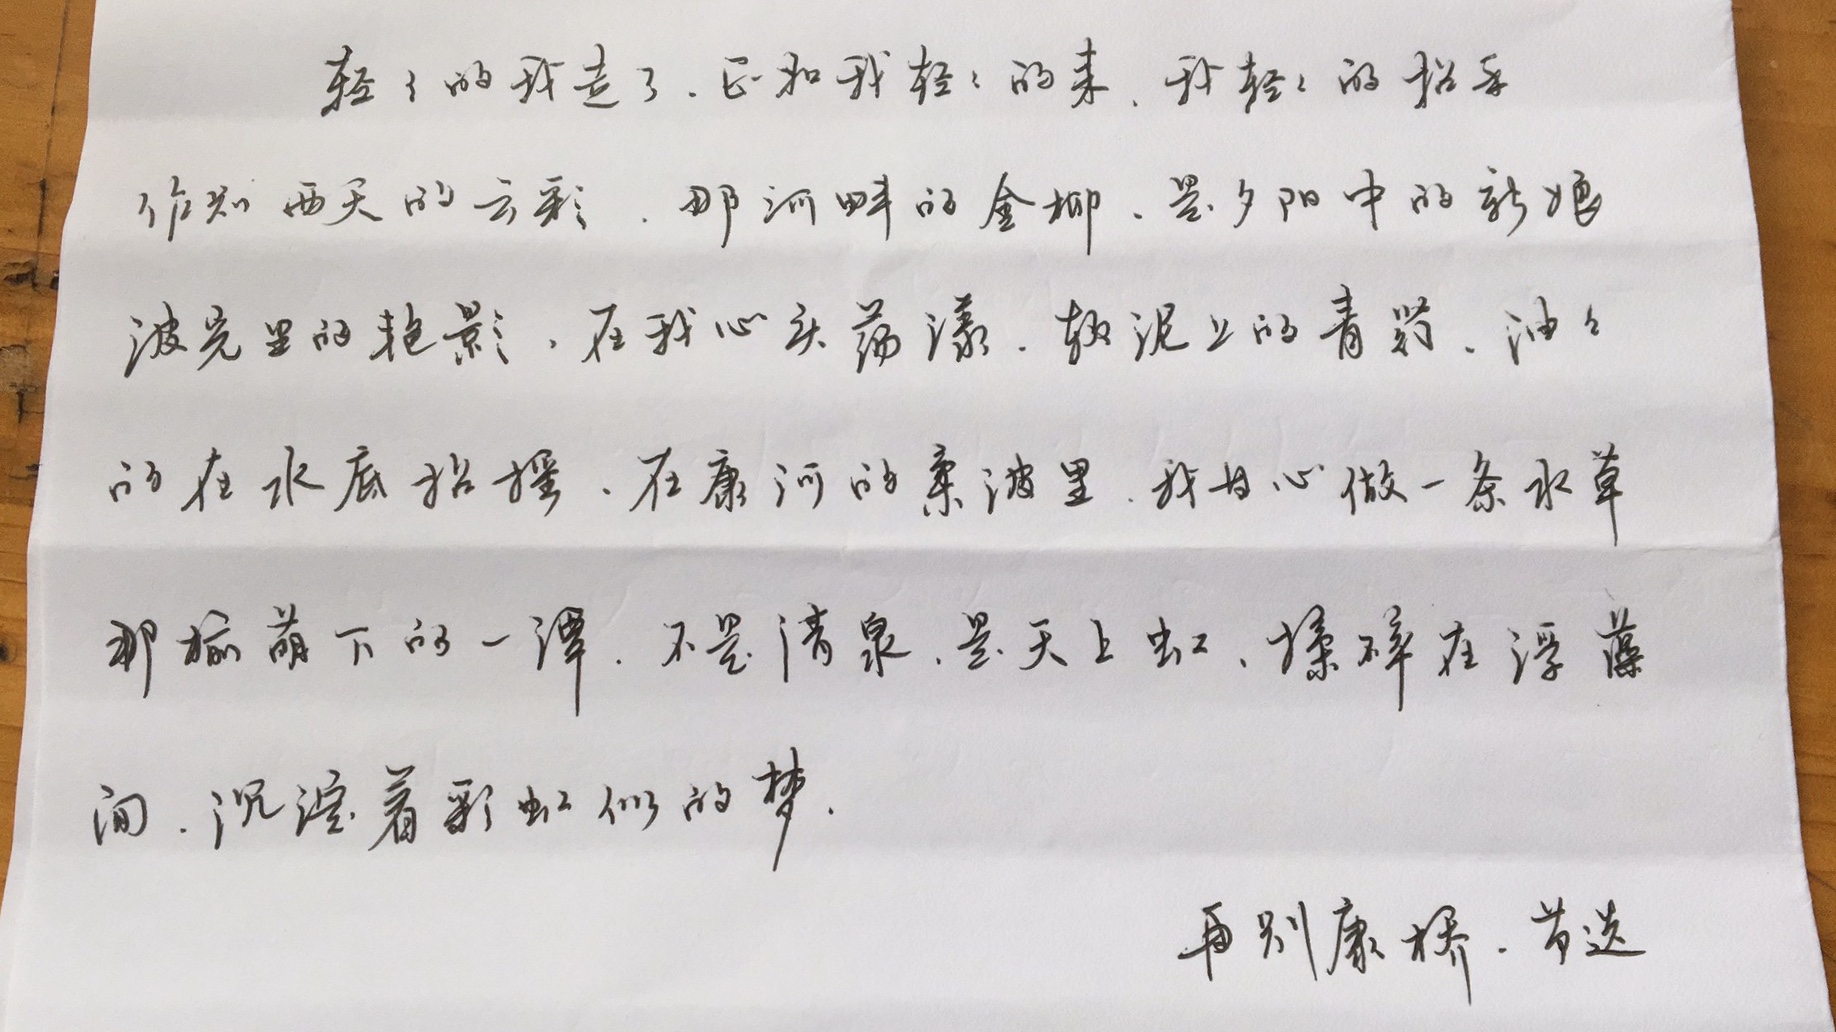 轻々的我走了.正如我轻々的来.我轻々的招手
作别西天的云彩.那河畔的金柳.是夕阳中的新娘
波光里的艳影.在我心头荡漾.软泥上的青荇.油々
的在水底招摇.在康河的柔波里.我甘心做一条水草
那榆荫下的一潭.不是清泉.是天上虹.揉碎在浮藻
间.沉淀着彩虹似的梦.
再别康桥.节选